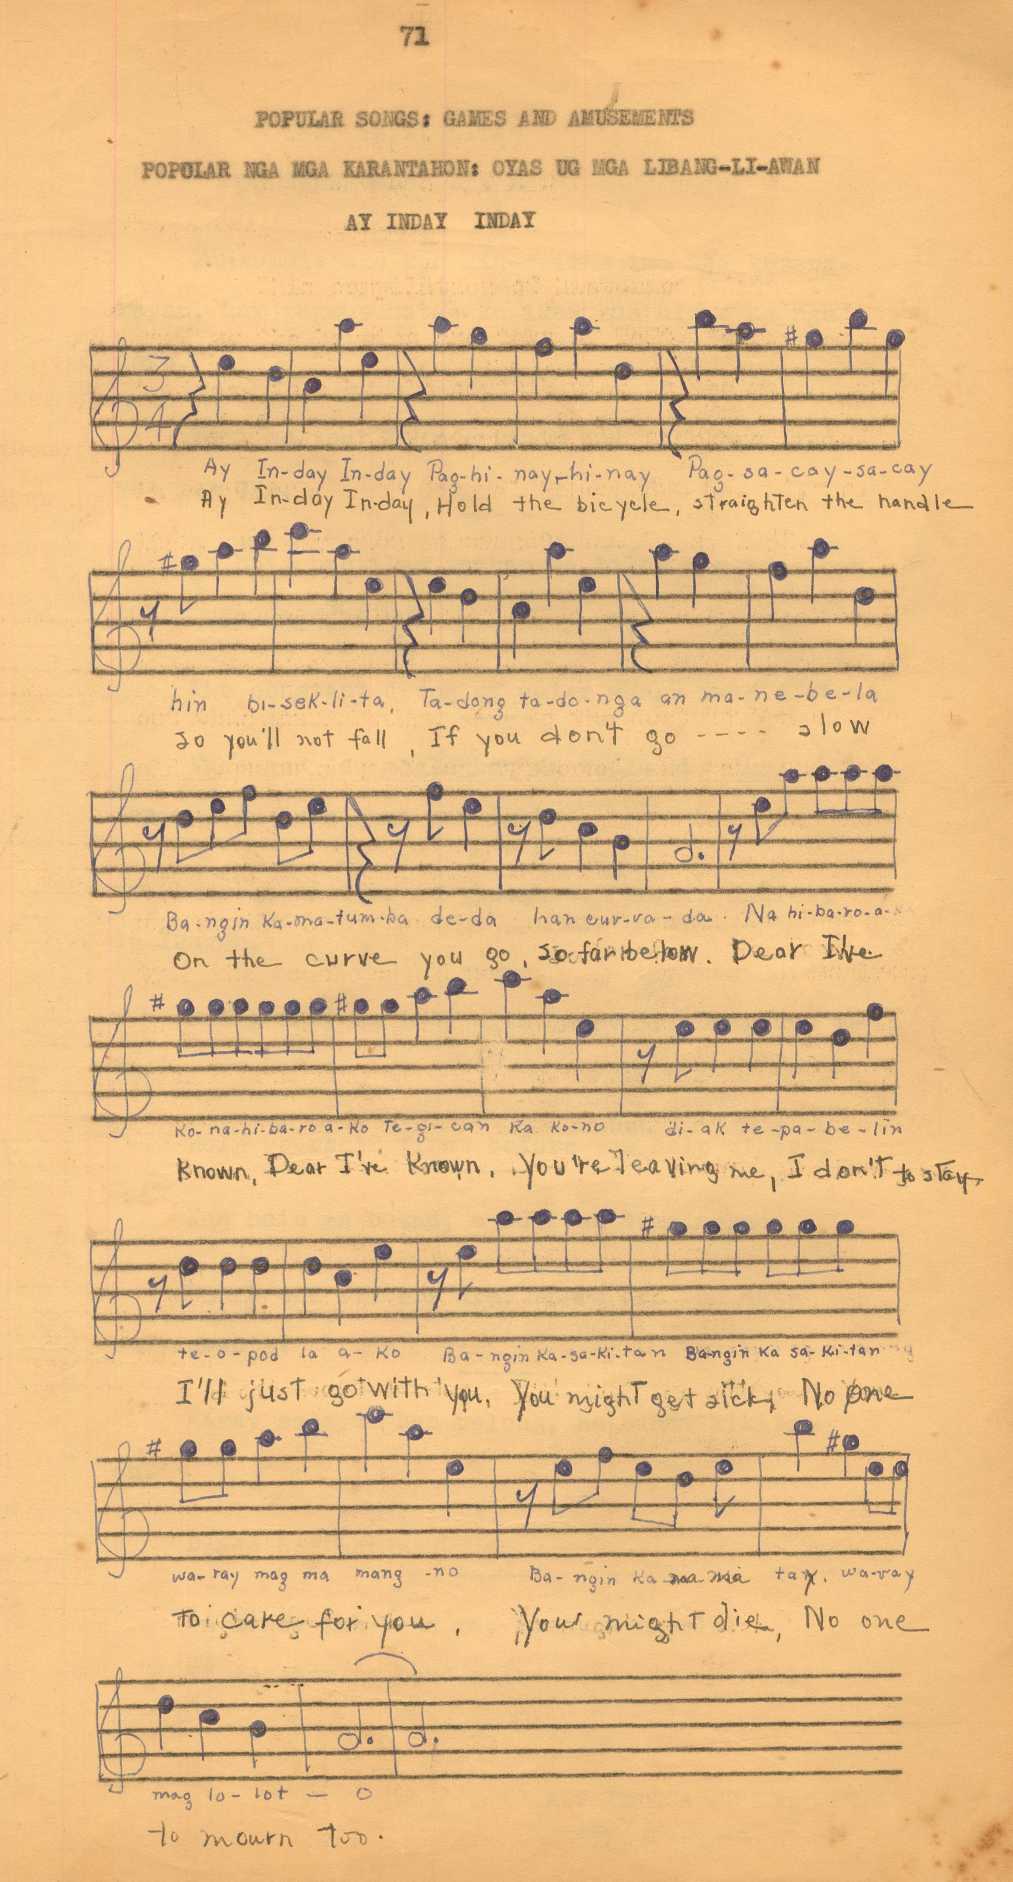 71
POPULAR SONGS: GAMES AND AMUSEMENTS
POPULAR NGA MGA KARANTAHON: OYAS UG MGA LIBANG-LI-AWAN
AY INDAY INDAY
3
4
Ay In-day In-day Pag-hi-nay-hi-nay Pag-sa-cay-sa-cay
Ay In-day In-day, Hold the bicycle, straighten the handle
hin bi-sek-li-ta, Ta-dong ta-do-nga an ma-ne-be-la
so you'll not fall, If you don't go ---- slow
Ba-ngin Ka-ma-tum-ba de-da han cur-va-da. Na hi-ba-ro-a-
On the curve you go, so far below. Dear I've
Ko-na-hi-ba-ro a-ko Te-gi-can Ka Ko-no di-ak te-pa-be-lin
Known, Dear I've Known, You're leaving me, I don't to stay
te-o-pod la a-Ko Ba-ngin Ka-sa-Ki-tan Ba-ngin Ka sa-Ki-tan
I'll just go with you, You might get sick, No one
wa-ray mag ma mang-no Ba-ngin Ka ma tay, wa-ray
To care for you, You might die, No one
mag lo-lot — O
to mourn too.